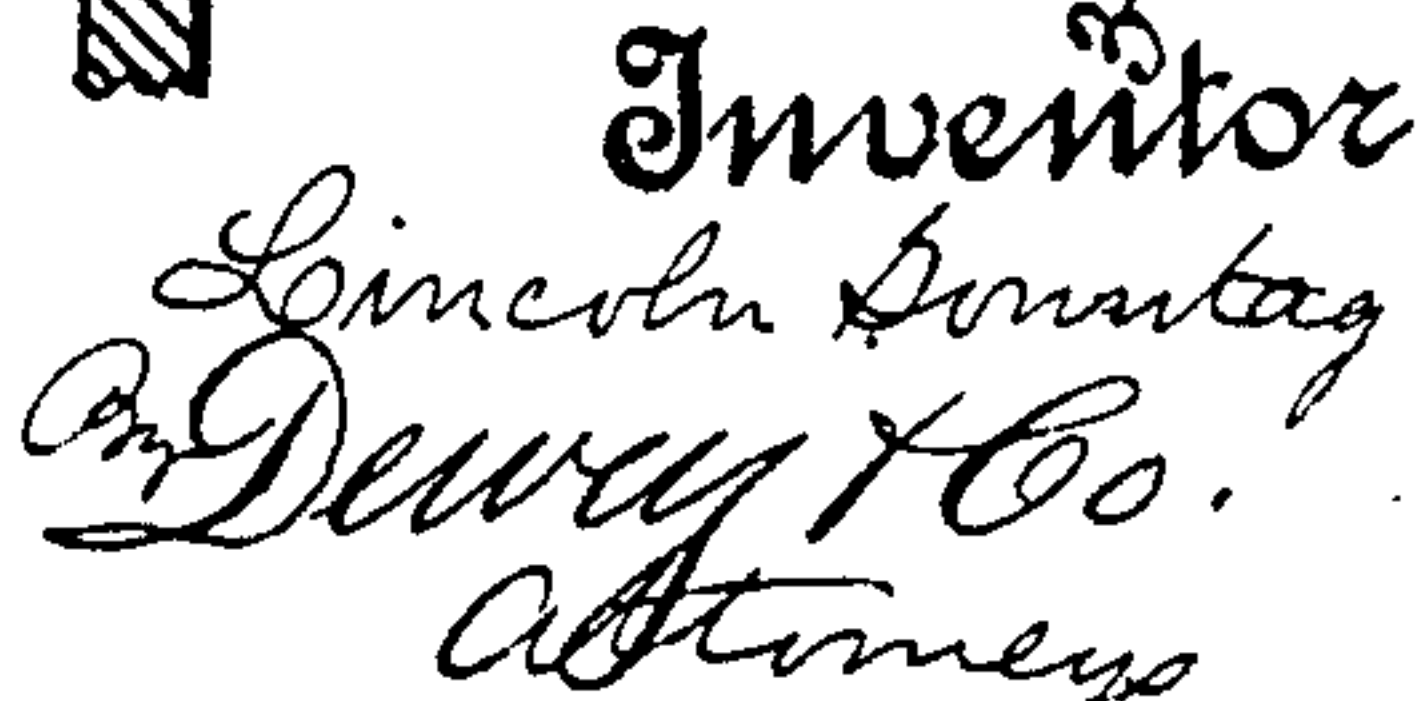 Inventor
Lincoln Sonntag
By Dewey & Co.
Attorneys